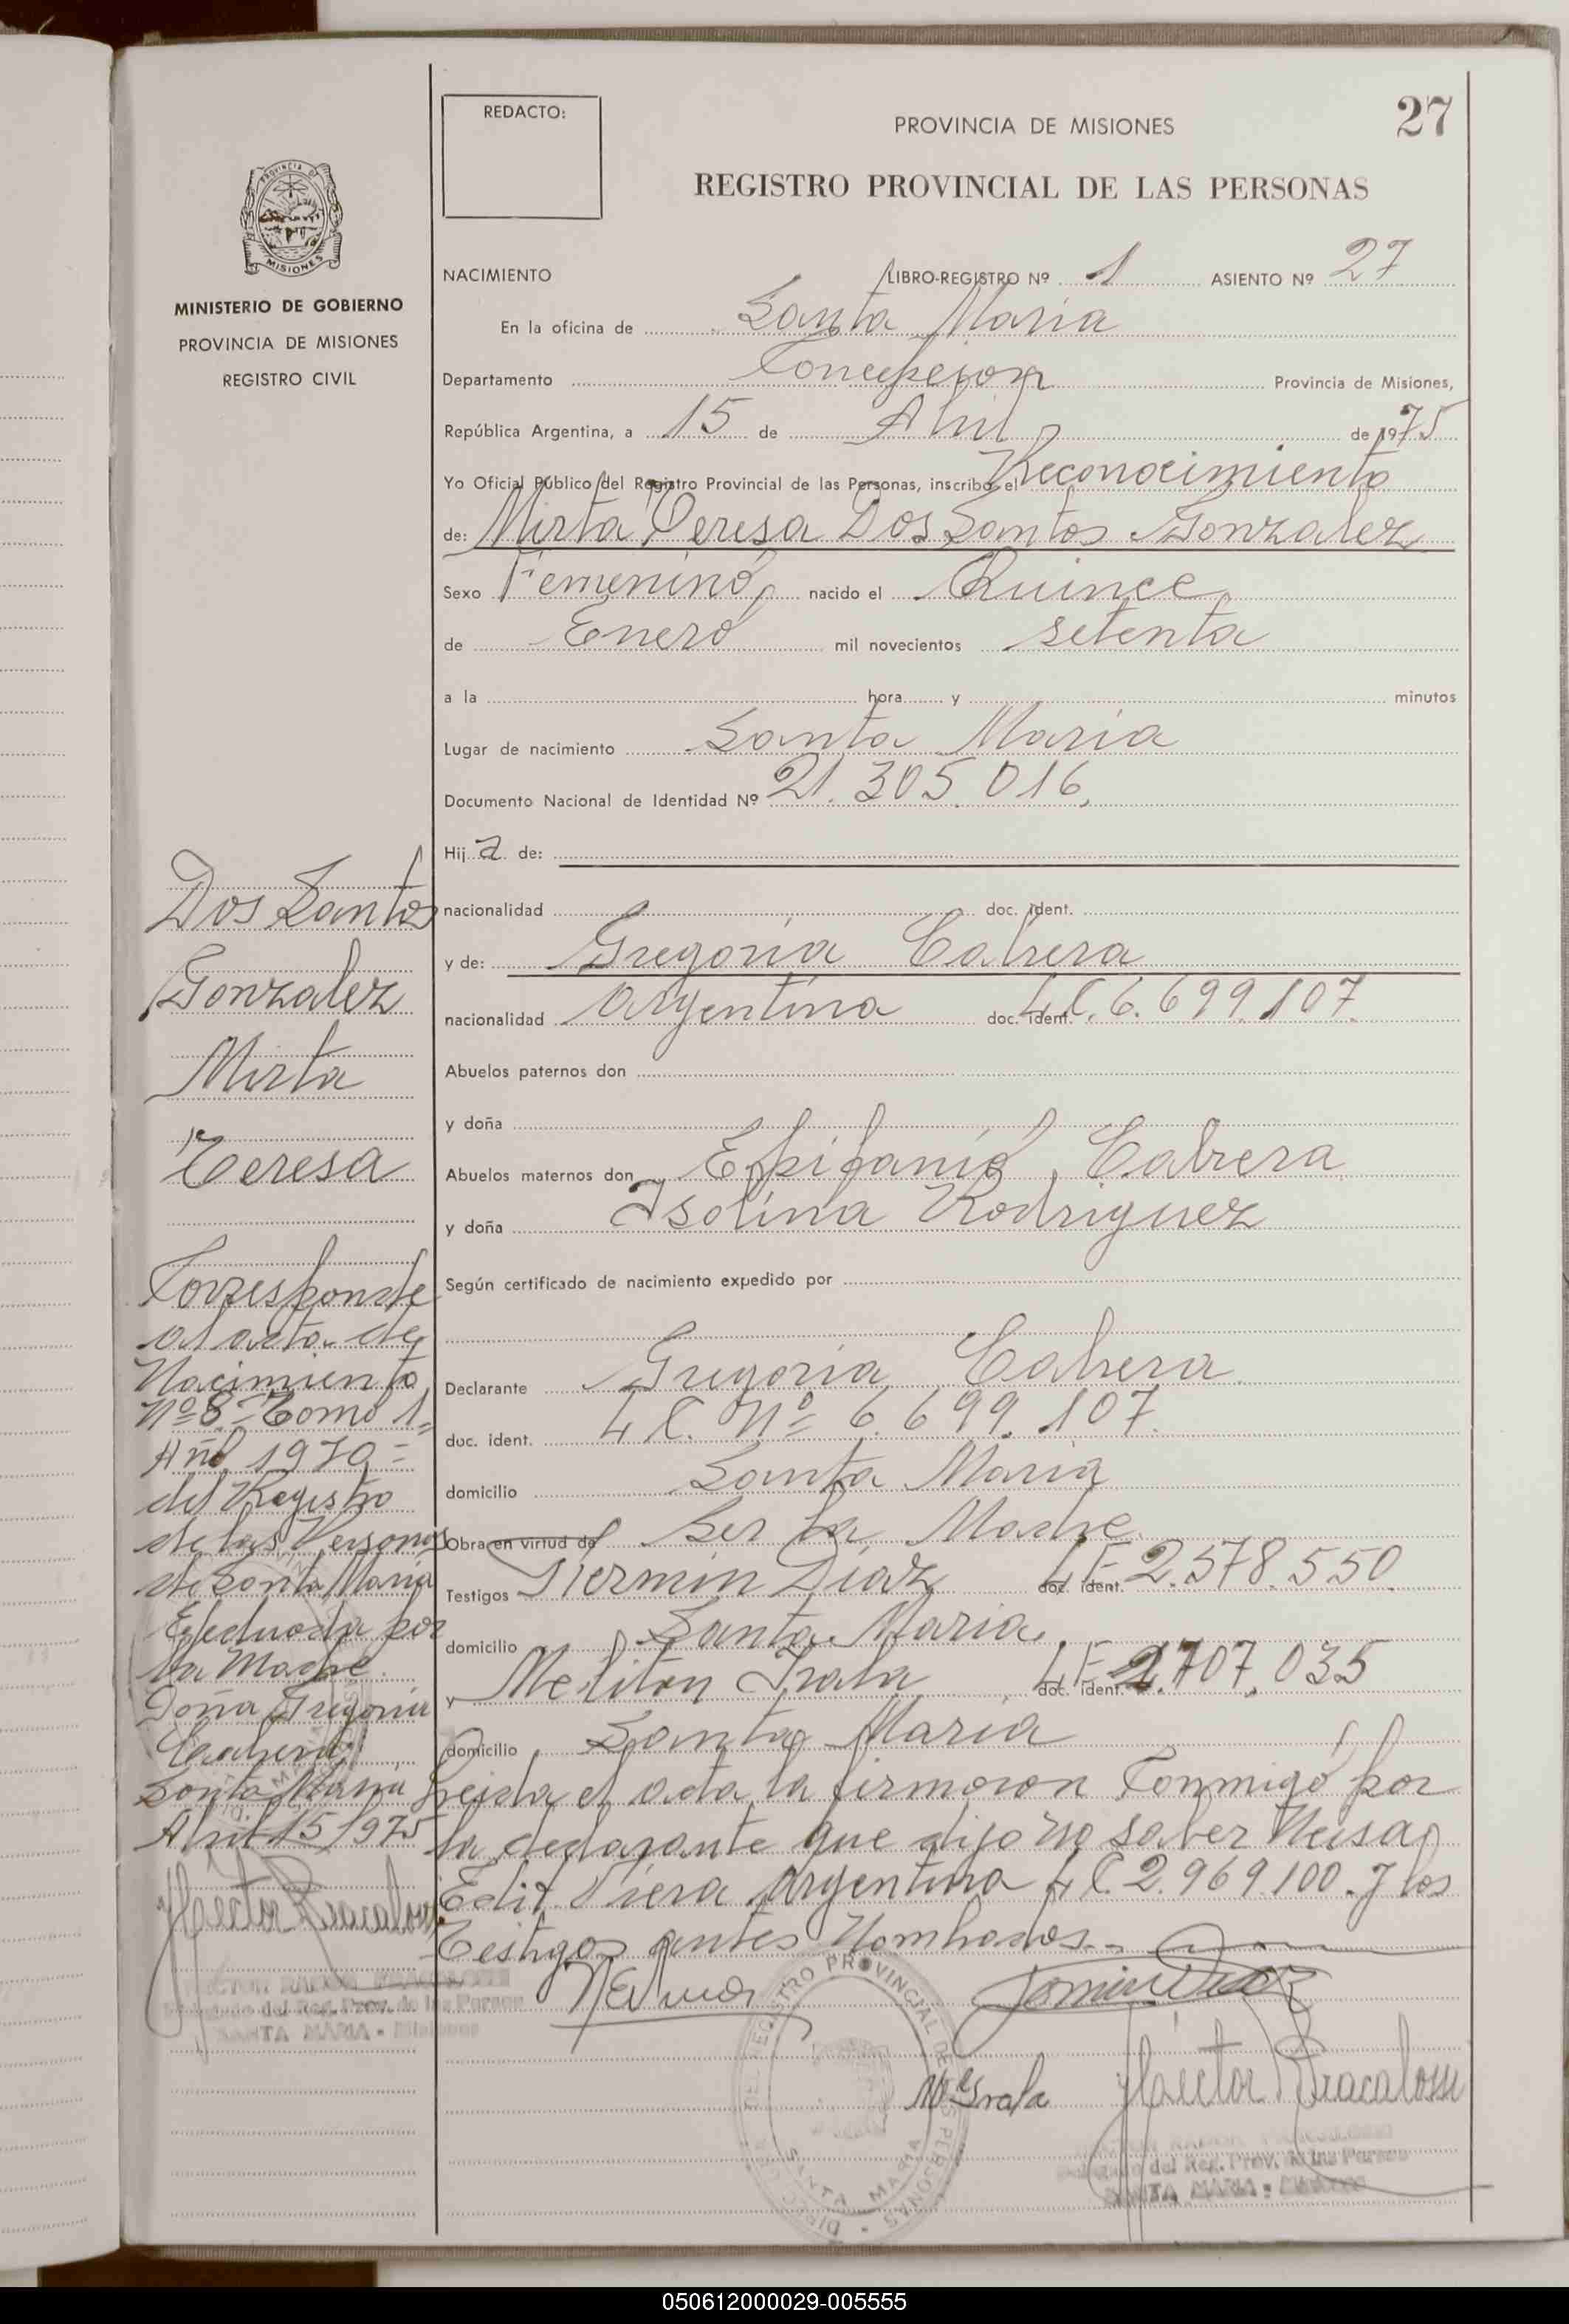 REDACTO:
PROVINCIA DE MISIONES
27
REGISTRO PROVINCIAL DE LAS PERSONAS
MISIONES
MINISTERIO DE GOBIERNO
PROVINCIA DE MISIONES
REGISTRO CIVIL
NACIMIENTO LIBRO-REGISTRO Nº 1 ASIENTO Nº 27
En la oficina de Santa Maria
Departamento Concepcion Provincia de Misiones,
República Argentina, a 15 de Abril de 1975
Yo Oficial Público del Registro Provincial de las Personas, inscribo el Reconocimiento
de: Mirta Teresa Dos Santos Gonzalez
Sexo Femenino nacido el Quince
de Enero mil novecientos setenta
a la hora y minutos
Lugar de nacimiento Santa Maria
Documento Nacional de Identidad Nº 21.305.016,
Hij a de:
nacionalidad doc. ident.
y de: Gregoria Cabrera
nacionalidad argentina doc. ident. L.C. 6.699.107.
Abuelos paternos don
y doña
Abuelos maternos don Epifanio Cabrera
y doña Isolina Rodriguez
Según certificado de nacimiento expedido por
Declarante Gregoria Cabrera
doc. ident. L C. Nº 6.699.107.
domicilio Santa Maria
Obra en virtud de Ser la Madre
Testigos Fermin Diaz doc. ident. L E 2.578.550
domicilio Santa Maria
y Meliton Irala doc. ident. L E .707.035
domicilio Santa Maria
Leida el acta la firmaron Conmigo por
la declarante que dijo no saber Neisa
Edit Viera argentina L C. 2.969.100. y los
Testigos antes Nombrados.-
Fermin Diaz
M Irala Hector Bracalossi
Delegado del Reg. Prov. de las Person
SANTA MARIA - Misiones
REGISTRO PROVINCIAL DE LAS PERSONAS
SANTA MARIA
Dos Santos
Gonzalez
Mirta
Teresa
Corresponde
al acta de
Nacimiento
Nº 8 - Tomo 1=
Año 1970=
del Registro
de las Personas
de Santa Maria
Efectuada por
la Madre
Doña Gregoria
Cabrera
Santa Maria
Abril 15/975
Hector Bracalossi
HECTOR RAMON BRACALOSSI
Delegado del Reg. Prov. de las Person
SANTA MARIA - Misiones
050612000029-005555